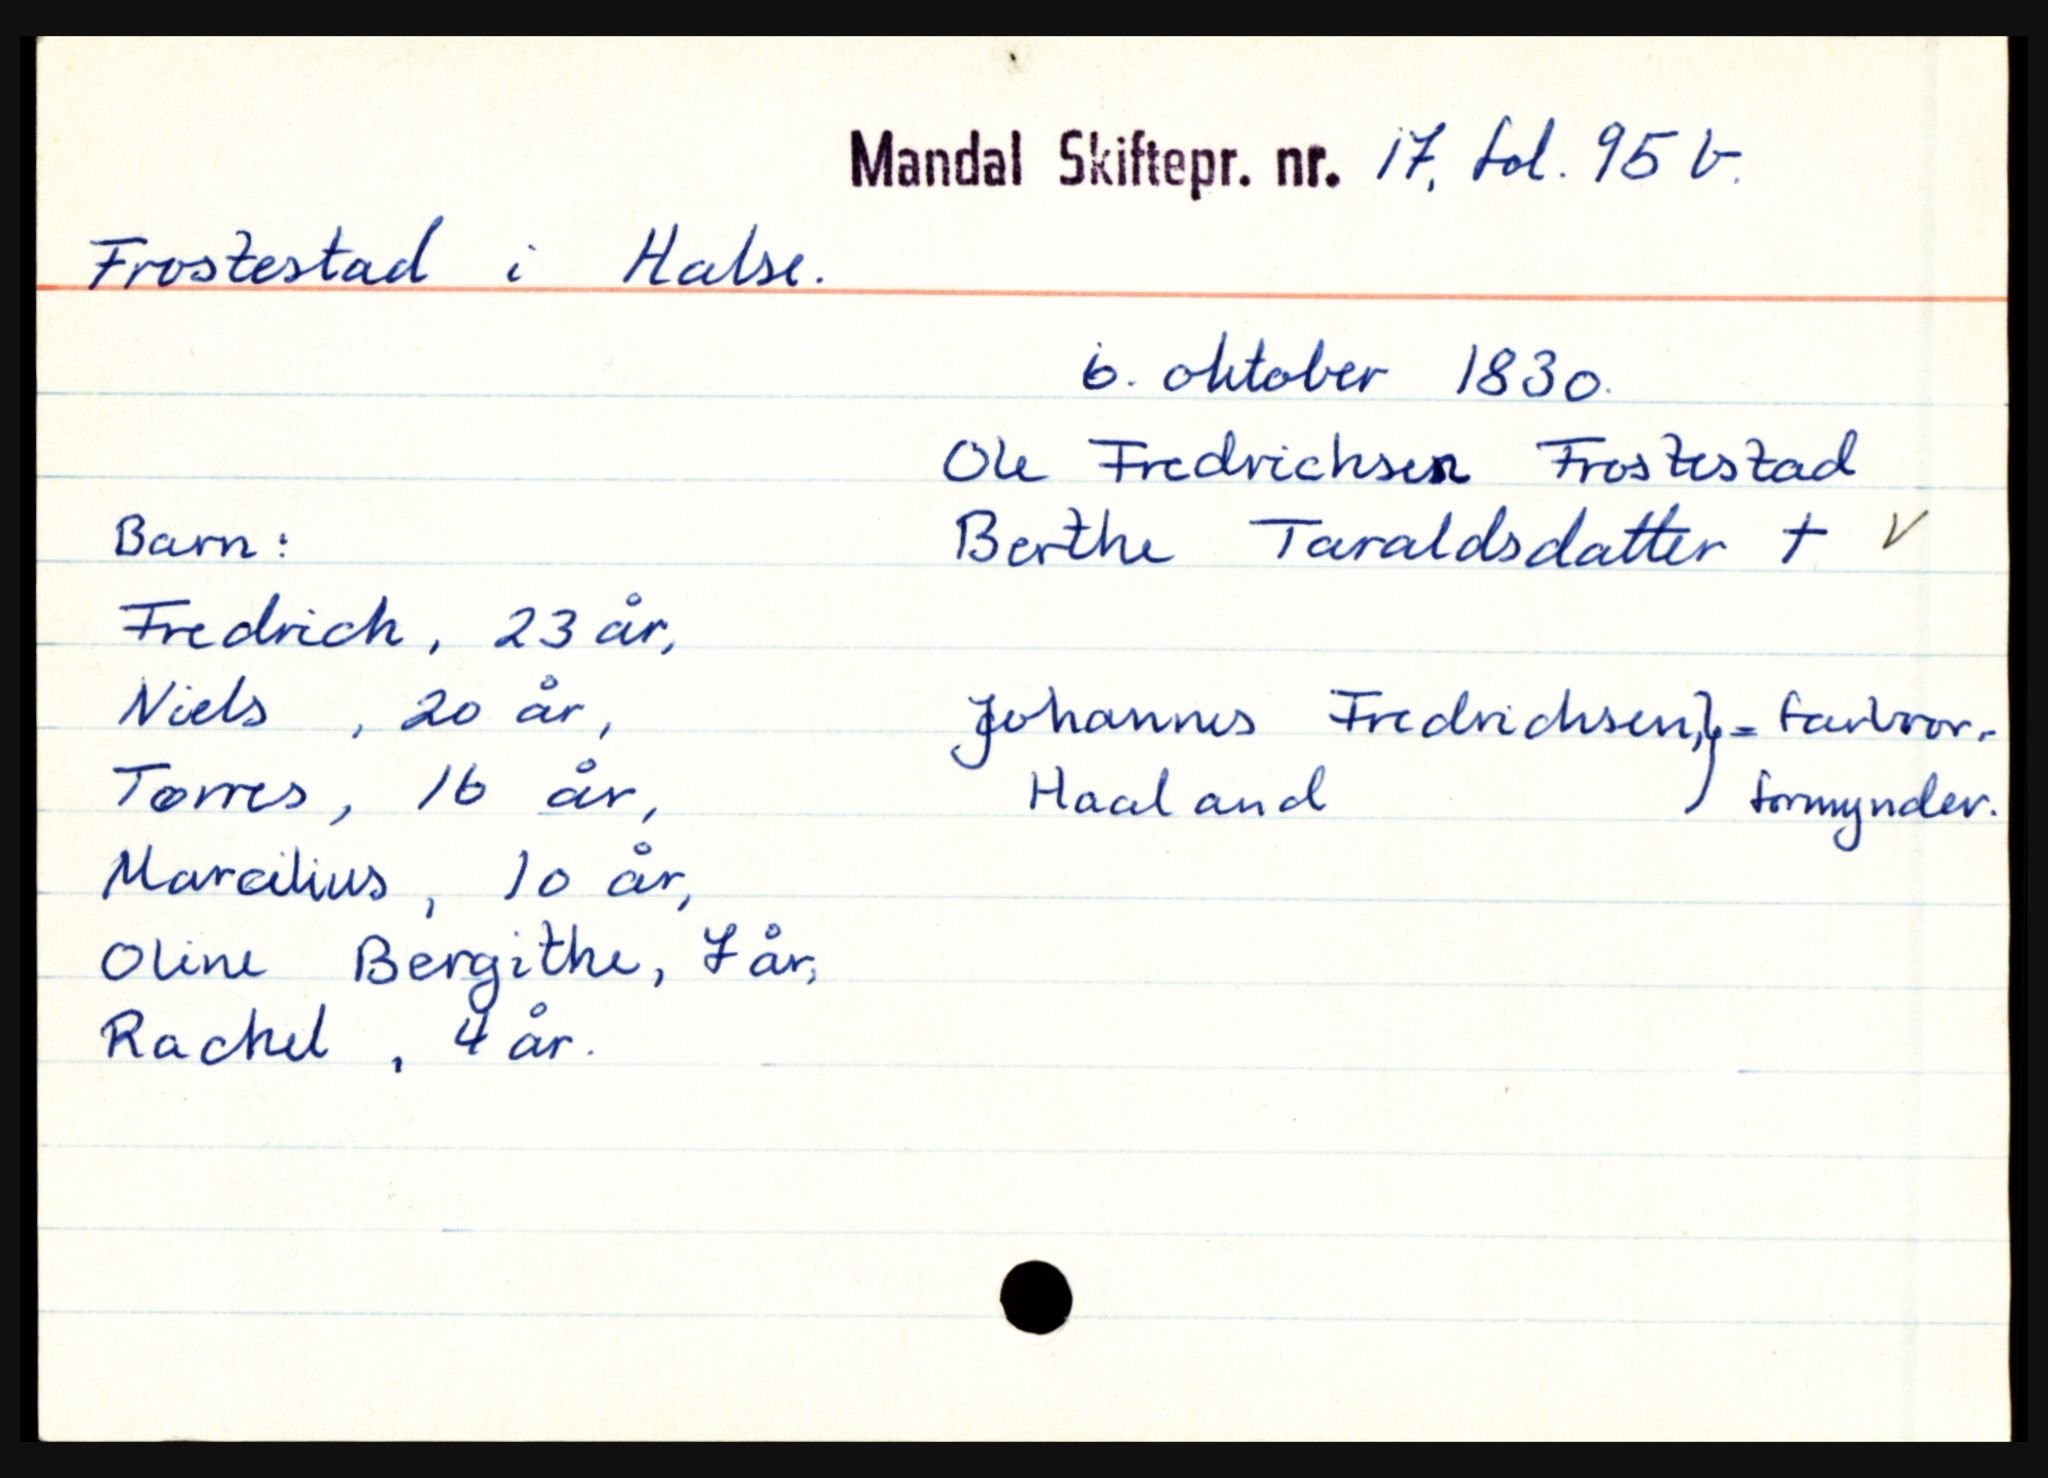 Mandal Skiftepr. nr. 17, fol. 95 b.
Frostestad i Halse.
6. oktober 1830.
Ole Fredrichsen Frostestad
Berthe Taraldsdatter † V
Barn:
Fredrich, 23 år,
Niels, 20 år,
Tørres, 16 år,
Marcilius, 10 år,
Oline Bergithe, 7 år,
Rachel, 4 år.
Johannes Fredrichsen, } = farbror.
Haaland formynder.